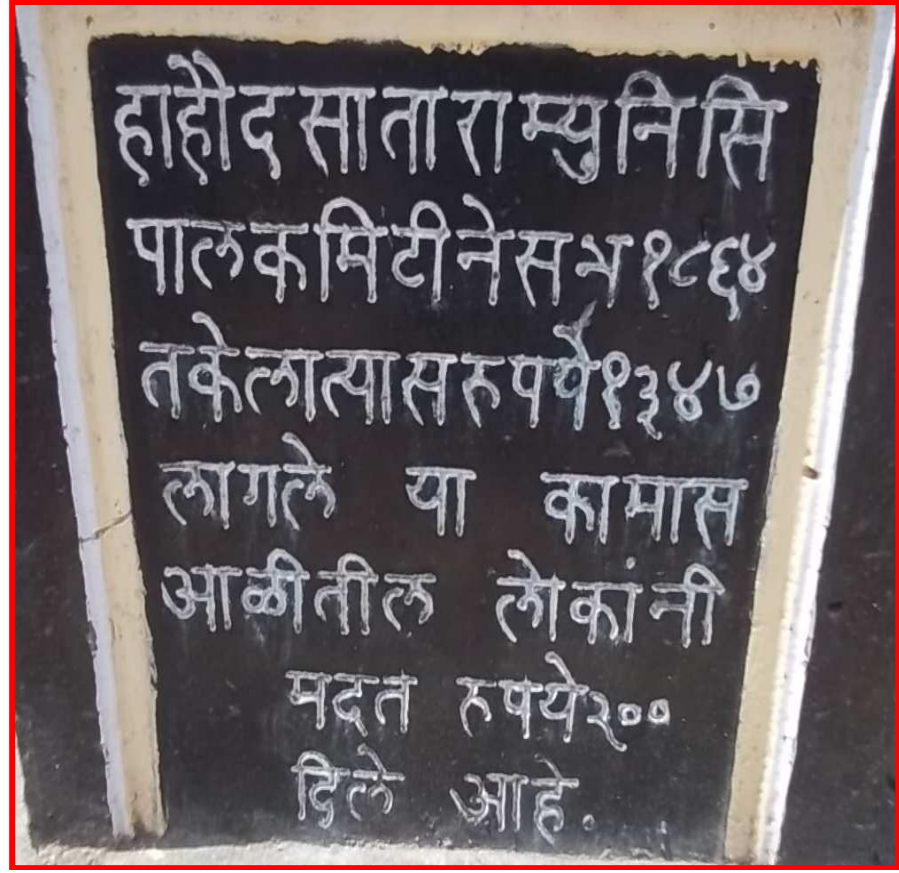 हाहौद सातारा म्युनिसि
पालकमिटीने सन१८६४
तकेला त्यास रुपये१३४७
लागले या कामास
आळीतील लोकांनी
मदत रुपये२००
दिले आहे.